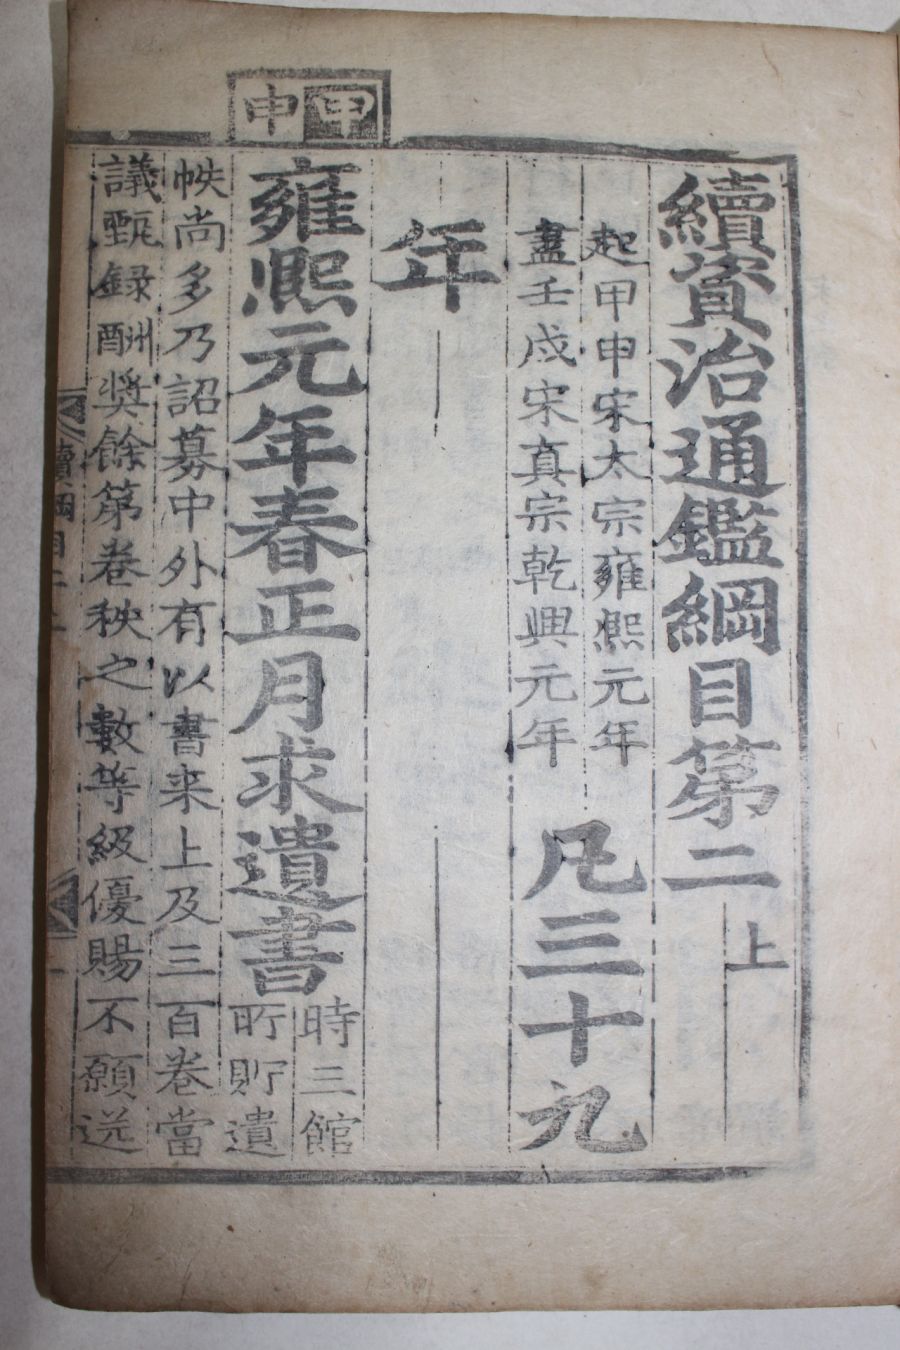 續資治通鑑綱目第二上
起甲申宋太宗雍熙元年
盡壬戌宋真宗乾興元年
凡三十九
年
甲申
雍熙元年春正月求遺書
時三館
所貯遺
帙尚多乃詔募中外有以書来上及三百卷當
議甄録酬奨餘第卷秩之數等級優賜不願送
續綱目